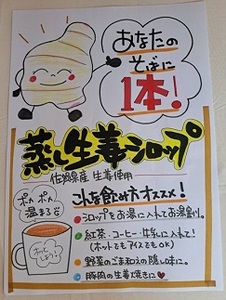 あなたの
そばに
1本!
蒸し生姜シロップ
佐賀県産 生姜使用
こんな飲み方オススメ!
ポカポカ
温まる
ホッと
しよう♪
シロップをお湯に入れてお湯割り。
紅茶・コーヒー・牛乳に入れて!
(ホットでもアイスでもOK)
野菜のごま和えの隠し味に。
豚肉の生姜焼きに♥